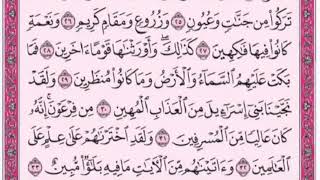 تَرَكُوا۟ مِن جَنَّـٰتٍ وَعُيُونٍ ٢٥ وَزُرُوعٍ وَمَقَامٍ كَرِيمٍ ٢٦ وَنَعْمَةٍ
كَانُوا۟ فِيهَا فَـٰكِهِينَ ٢٧ كَذَٰلِكَ وَأَوْرَثْنَـٰهَا قَوْمًا ءَاخَرِينَ ٢٨ فَمَا
بَكَتْ عَلَيْهِمُ ٱلسَّمَآءُ وَٱلْأَرْضُ وَمَا كَانُوا۟ مُنظَرِينَ ٢٩ وَلَقَدْ
نَجَّيْنَا بَنِىٓ إِسْرَٰٓءِيلَ مِنَ ٱلْعَذَابِ ٱلْمُهِينِ ٣٠ مِن فِرْعَوْنَ إِنَّهُۥ
كَانَ عَالِيًا مِّنَ ٱلْمُسْرِفِينَ ٣١ وَلَقَدِ ٱخْتَرْنَـٰهُمْ عَلَىٰ عِلْمٍ عَلَى
ٱلْعَـٰلَمِينَ ٣٢ وَءَاتَيْنَـٰهُم مِّنَ ٱلْـَٔايَـٰتِ مَا فِيهِ بَلَـٰٓؤٌا۟ مُّبِينٌ ٣٣